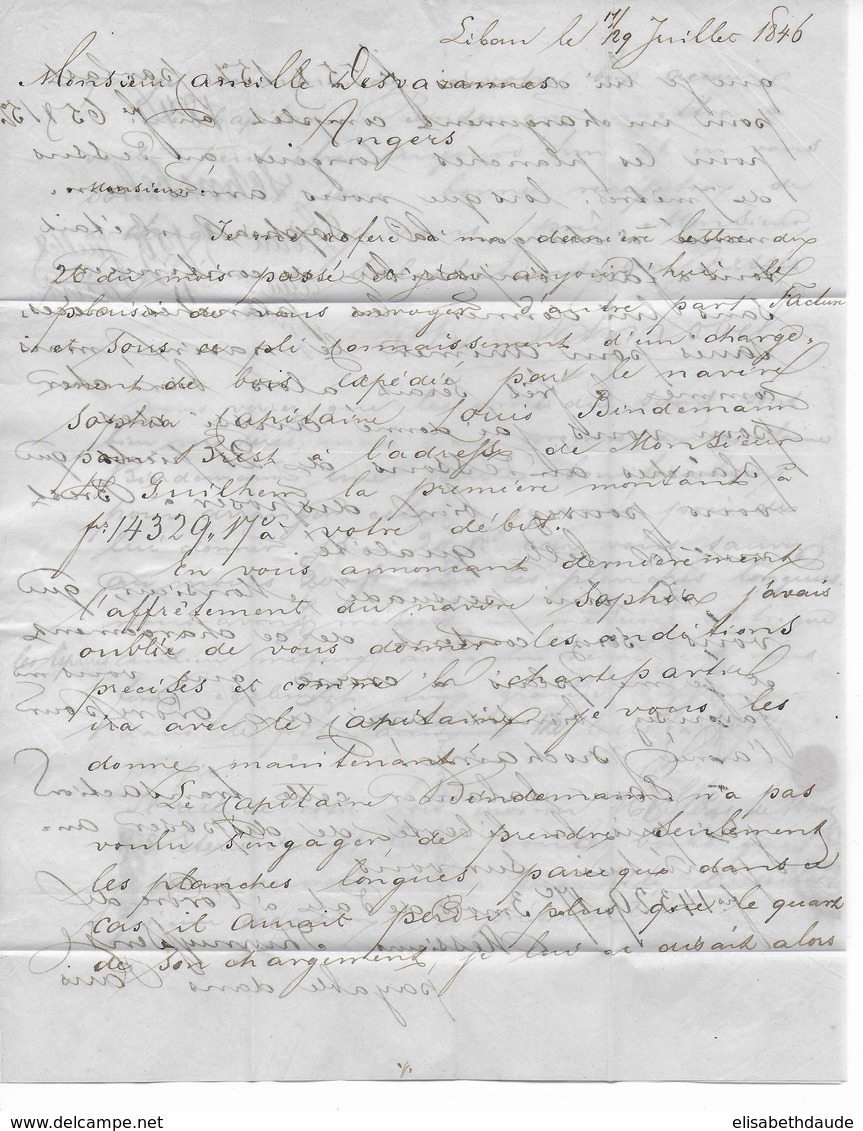 Libau le 17/29 Juillet 1846
Monsieur Camille Desvarannes
Angers
Monsieur!
Je me réfère à ma dernière lettre du
26 du mois passé et j'ai aujourd'hui le
plaisir de vous envoyer d'autre part Facture
et sous ce pli connaissement d'un charge-
ment de bois expédié par le navire
Sophia Capitaine Louis Bindemann
pour Brest à l'adresse de Monsieur
Guilhem la première montant à
fr 14329,,17 à votre débit.
En vous annoncant dernièrement
l'affrêtement du navire Sophia j'avais
oublié de vous donner les conditions
précises et comme la chartepartie
ira avec le Capitaine je vous les
donne maintenant.
Le Capitaine Bindemann n'a pas
voulu s'engager de prendre seulement
les planches longues parceque dans ce
cas il aurait perdu plus que le quart
de son chargement, je lui ai alors
elisabethdaude